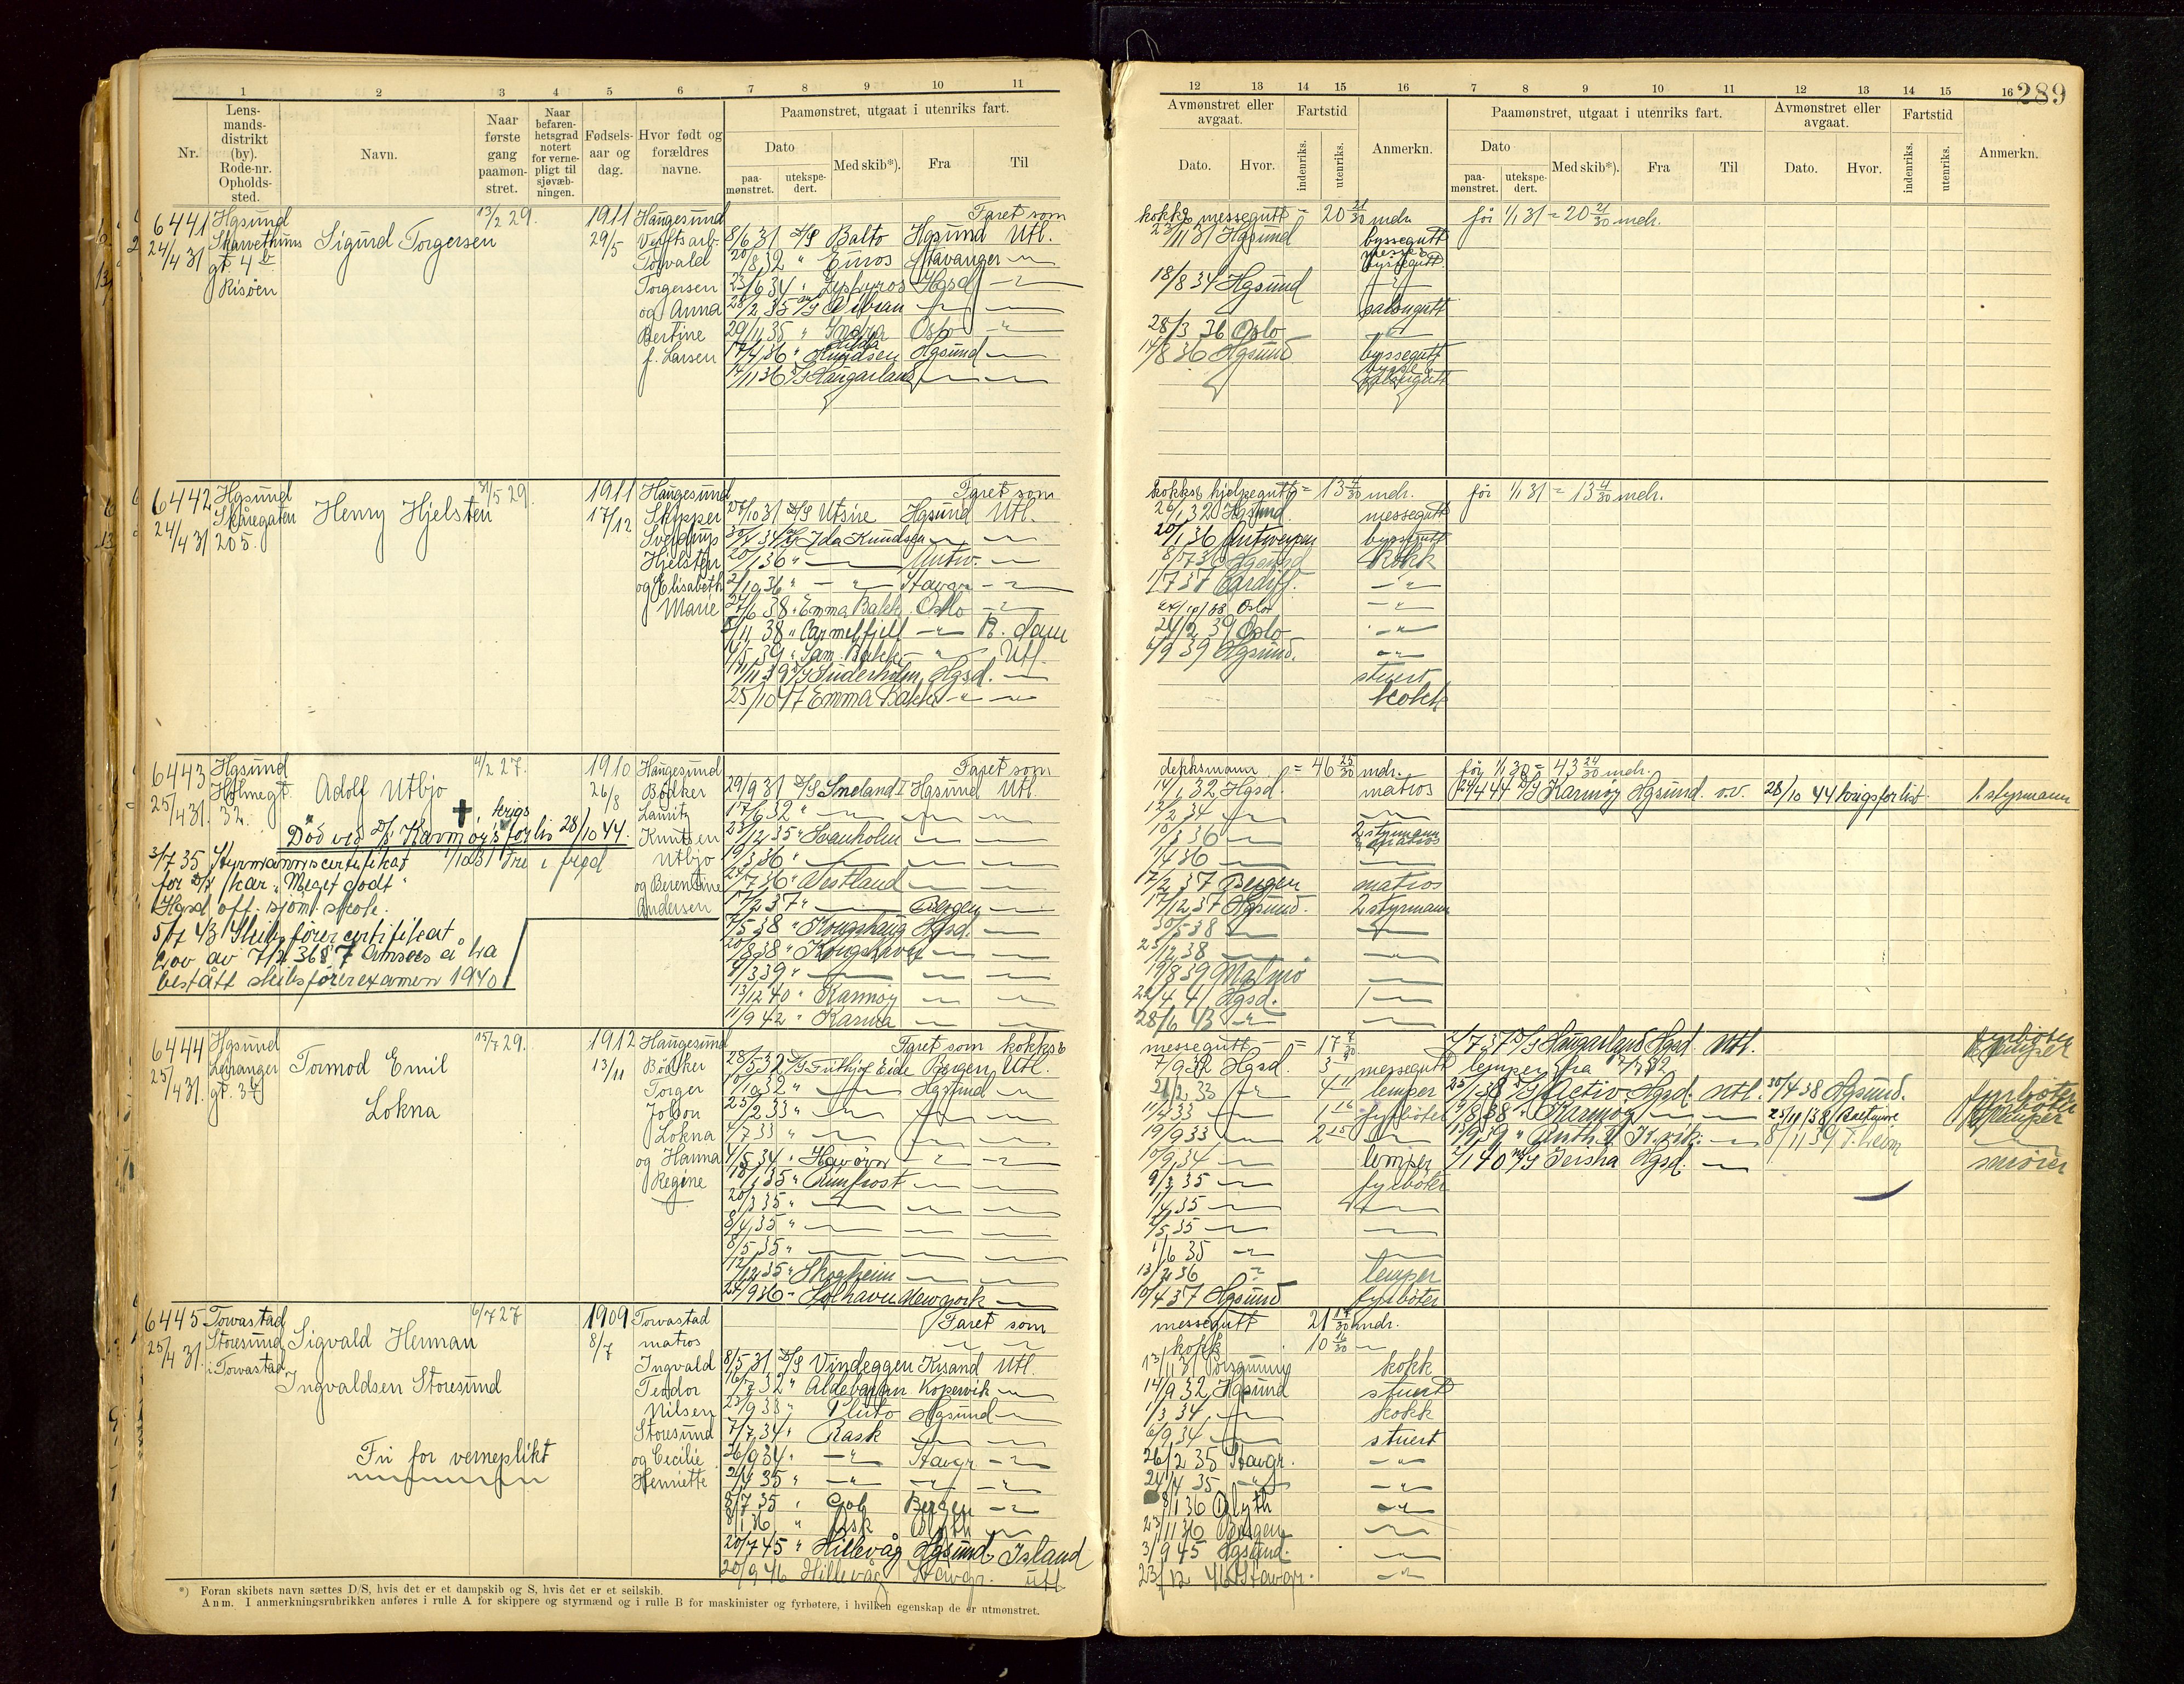 289
1 2 3 4 5 6 7 8 9 10 11
Nr.
Lens-
mands-
distrikt
(by).
Rode-nr.
Opholds-
sted.
Navn.
Naar
første
gang
paamøn-
stret.
Naar
befaren-
hetsgrad
notert
for verne-
pligt til
sjøvæb-
ningen.
Fødsels-
aar og
dag.
Hvor født og
forældres
navne.
Paamønstret, utgaat i utenriks fart.
Dato
paa-
mønstret.
utekspe-
dert.
Med skib*).
Fra
Til
12 13 14 15 16 7 8 9 10 11 12 13 14 15 16
Avmønstret eller
avgaat.
Dato.
Hvor.
Fartstid
indenriks.
utenriks.
Anmerkn.
Paamønstret, utgaat i utenriks fart.
Dato
paa-
mønstret.
utekspe-
dert.
Med skib*).
Fra
Til
Avmønstret eller
avgaat.
Dato.
Hvor.
Fartstid
indenriks.
utenriks.
Anmerkn.
6441
24/4 31
Hgsund
gt. 4 b
Risöen
Sigurd Torgersen
13/2 29.
1911
29/5
Haugesund
Verftsarb.
Torvald
Torgersen
og Anna
Bertine
f. Larsen
Faret som
8/6 31 D/S Balto Hgsund Utl.
Stavanger
23/6 34 " Zephyros Hgsd
29/11 35 " Indra Oslo
17/4 36 " Hilda Knudsen Hgsund
14/11 36 D/S Haugarland
kokks messegutt = 20 21/30 mdr.
23/11 31 Hgsund byssegutt
18/8 34 Hgsund
salongutt
28/3 36 Oslo
14/8 36 Hgsund byssegutt
før 1/1 31 = 20 21/30 mdr.
6442
24/4 31
Hgsund
Skåregaten
205.
Henry Hjelsten
31/5 29.
1911
17/12
Haugesund
Skipper
Sverdrup
Hjelsten
og Elisabeth
Marie
Faret som
27/10 31 D/S Utsire Hgsund Utl.
Ida Knudsen
20/1 36 " Antw.
2/10 36 " Stavgr.
27/6 38 " Emma Bakke Oslo
8/11 38 " Carmelfjell R. dam
5 39 " Sam. Bakke Utl.
11/11 39 D/S Suderholm Hgsd.
25/10 47 Emma Bakke
kokks hjelpegutt = 13 4/30 mdr.
26/1 32 Hgsund. messegutt
20/1 36 Antwerpen byssgutt
8/7 36 Hgsund Kokk
1/7 37 Cardiff.
Oslo
21/2 39 Oslo
4/9 39 Hgsund.
stuert
kokk
før 1/1 31 = 13 4/30 mdr.
6443
25/4 31.
Hgsund
Holmegt.
32.
Adolf Utbjo
krigs
Död ved D/S Karmøy's forlis 28/10 44.
3/7 35 Styrmannscertifikat
for D/S kar. "Meget godt"
Hgsd off. sjöm. skole.
5/7 43 Skibsförercertifikat
Lov av 7/2 36 § 7 Ansees å ha
bestått skibsförerexamen 1940
4/2 27.
1910
26/8
Haugesund
Bödker
Lauritz
Knutsen
Utbjo
og Berentine
Andersen
Faret som
29/9 31 D/S Sneland I Hgsund Utl.
17/6 32 "
23/12 35 " Svanholm
19/3 36 "
24/7 36 " Vestland
17/2 37 " Bergen
7/5 38 " Kongshaug Hgsd.
20/8 38 " Kongshavn
4/3 39 "
13/12 40 " Karmøy
11/9 42 " Karma
dekksmann = 46 25/30 mdr.
14/1 32 Hgsd. matros
12/2 34
10/3 36 2 styrmann
1/4 36
17/2 37 Bergen matros
17/12 37 Hgsund. 2 styrmann
30/5 38
23/12 38
19/8 39 Malmö
22/4 41 Hgsd. 1
28/6 43
før 1/1 30 = 43 24/30 mdr.
D/S Karmøy Hgsund o.v. 28/10 44 krigsforlist 1 styrmann
6444
25/4 31.
Hgsund
Leiranger
gt. 34
Tormod Emil
Lokna
15/7 29.
1912
13/11
Haugesund
Bödker
Torger
Johan
Lokna
og Hanna
Regine
Faret som kokks &
28/5 32 D/S Fridthjof Eide Bergen Utl.
10/10 32 " Hgsund
25/2 33 "
4/7 33 "
1/5 34 " Havörn
10/1 35 " Rimfrost
20/3 35 "
8/4 35 "
8/5 35 "
12/12 35 " Skogheim
24/9 36 " Solhavn New York
messegutt = 17 7/30
7/9 32 Hgsd. 3 messegutt
21/2 33 4 11 lemper
11/4 33 1 16 fyrböter
19/9 33 2 15
10/9 34 lemper
9/3 35 fyrböter
1/4 35
4/5 35
1/6 35
13/2 36 lemper
10/4 37 Hgsund fyrböter
2/7 37 D/S Haugarland Hgsd. Utl.
lemper fra
25/1 38 D/S Activ Hgsd. Utl. 30/4 38 Hgsund. fyrböter
9/8 38 " Karmøy
13/9 39 " K.vik. 8/11 39 T.heim
2/1 40 M/S Jersha Hgsd. smörer
6445
25/4 31.
Torvastad
Storesund
i Torvastad
Sigvald Herman
Ingvaldsen Storesund
Fri for verneplikt
6/7 27
1909
8/7
Torvastad
matros
Ingvald
Teodor
Nilsen
Storesund
og Cecilie
Henriette
Faret som
8/5 31 D/S Vindeggen Krsand Utl.
16/7 32 " Aldebaran Kopervik
23/9 33 " Pluto Hgsund
7/7 34 " Rask
26/9 34 " Stavgr.
24/4 35 "
8/7 35 " Gol Bergen
8/1 36 " Ask Blyth
20/7 45 " Hillevåg Hgsund. Island
20/9 46 Hillevåg Stavgr. utl
messegutt 21 mdr.
kokk 10 16/30
13/11 31 Porsgrunn kokk
14/9 32 Hgsund stuert
1/3 34 kokk
6/9 34 stuert
26/2 35 Stavgr.
24/4 35
8/1 36 Blyth
23/11 36 Bergen
3/9 45 Hgsund.
23/12 46 Stavgr.
*) Foran skibets navn sættes D/S, hvis det er et dampskib og S, hvis det er et seilskib.
Anm. I anmerkningsrubrikken anføres i rulle A for skippere og styrmænd og i rulle B for maskinister og fyrbøtere, i hvilken egenskap de er utmønstret.